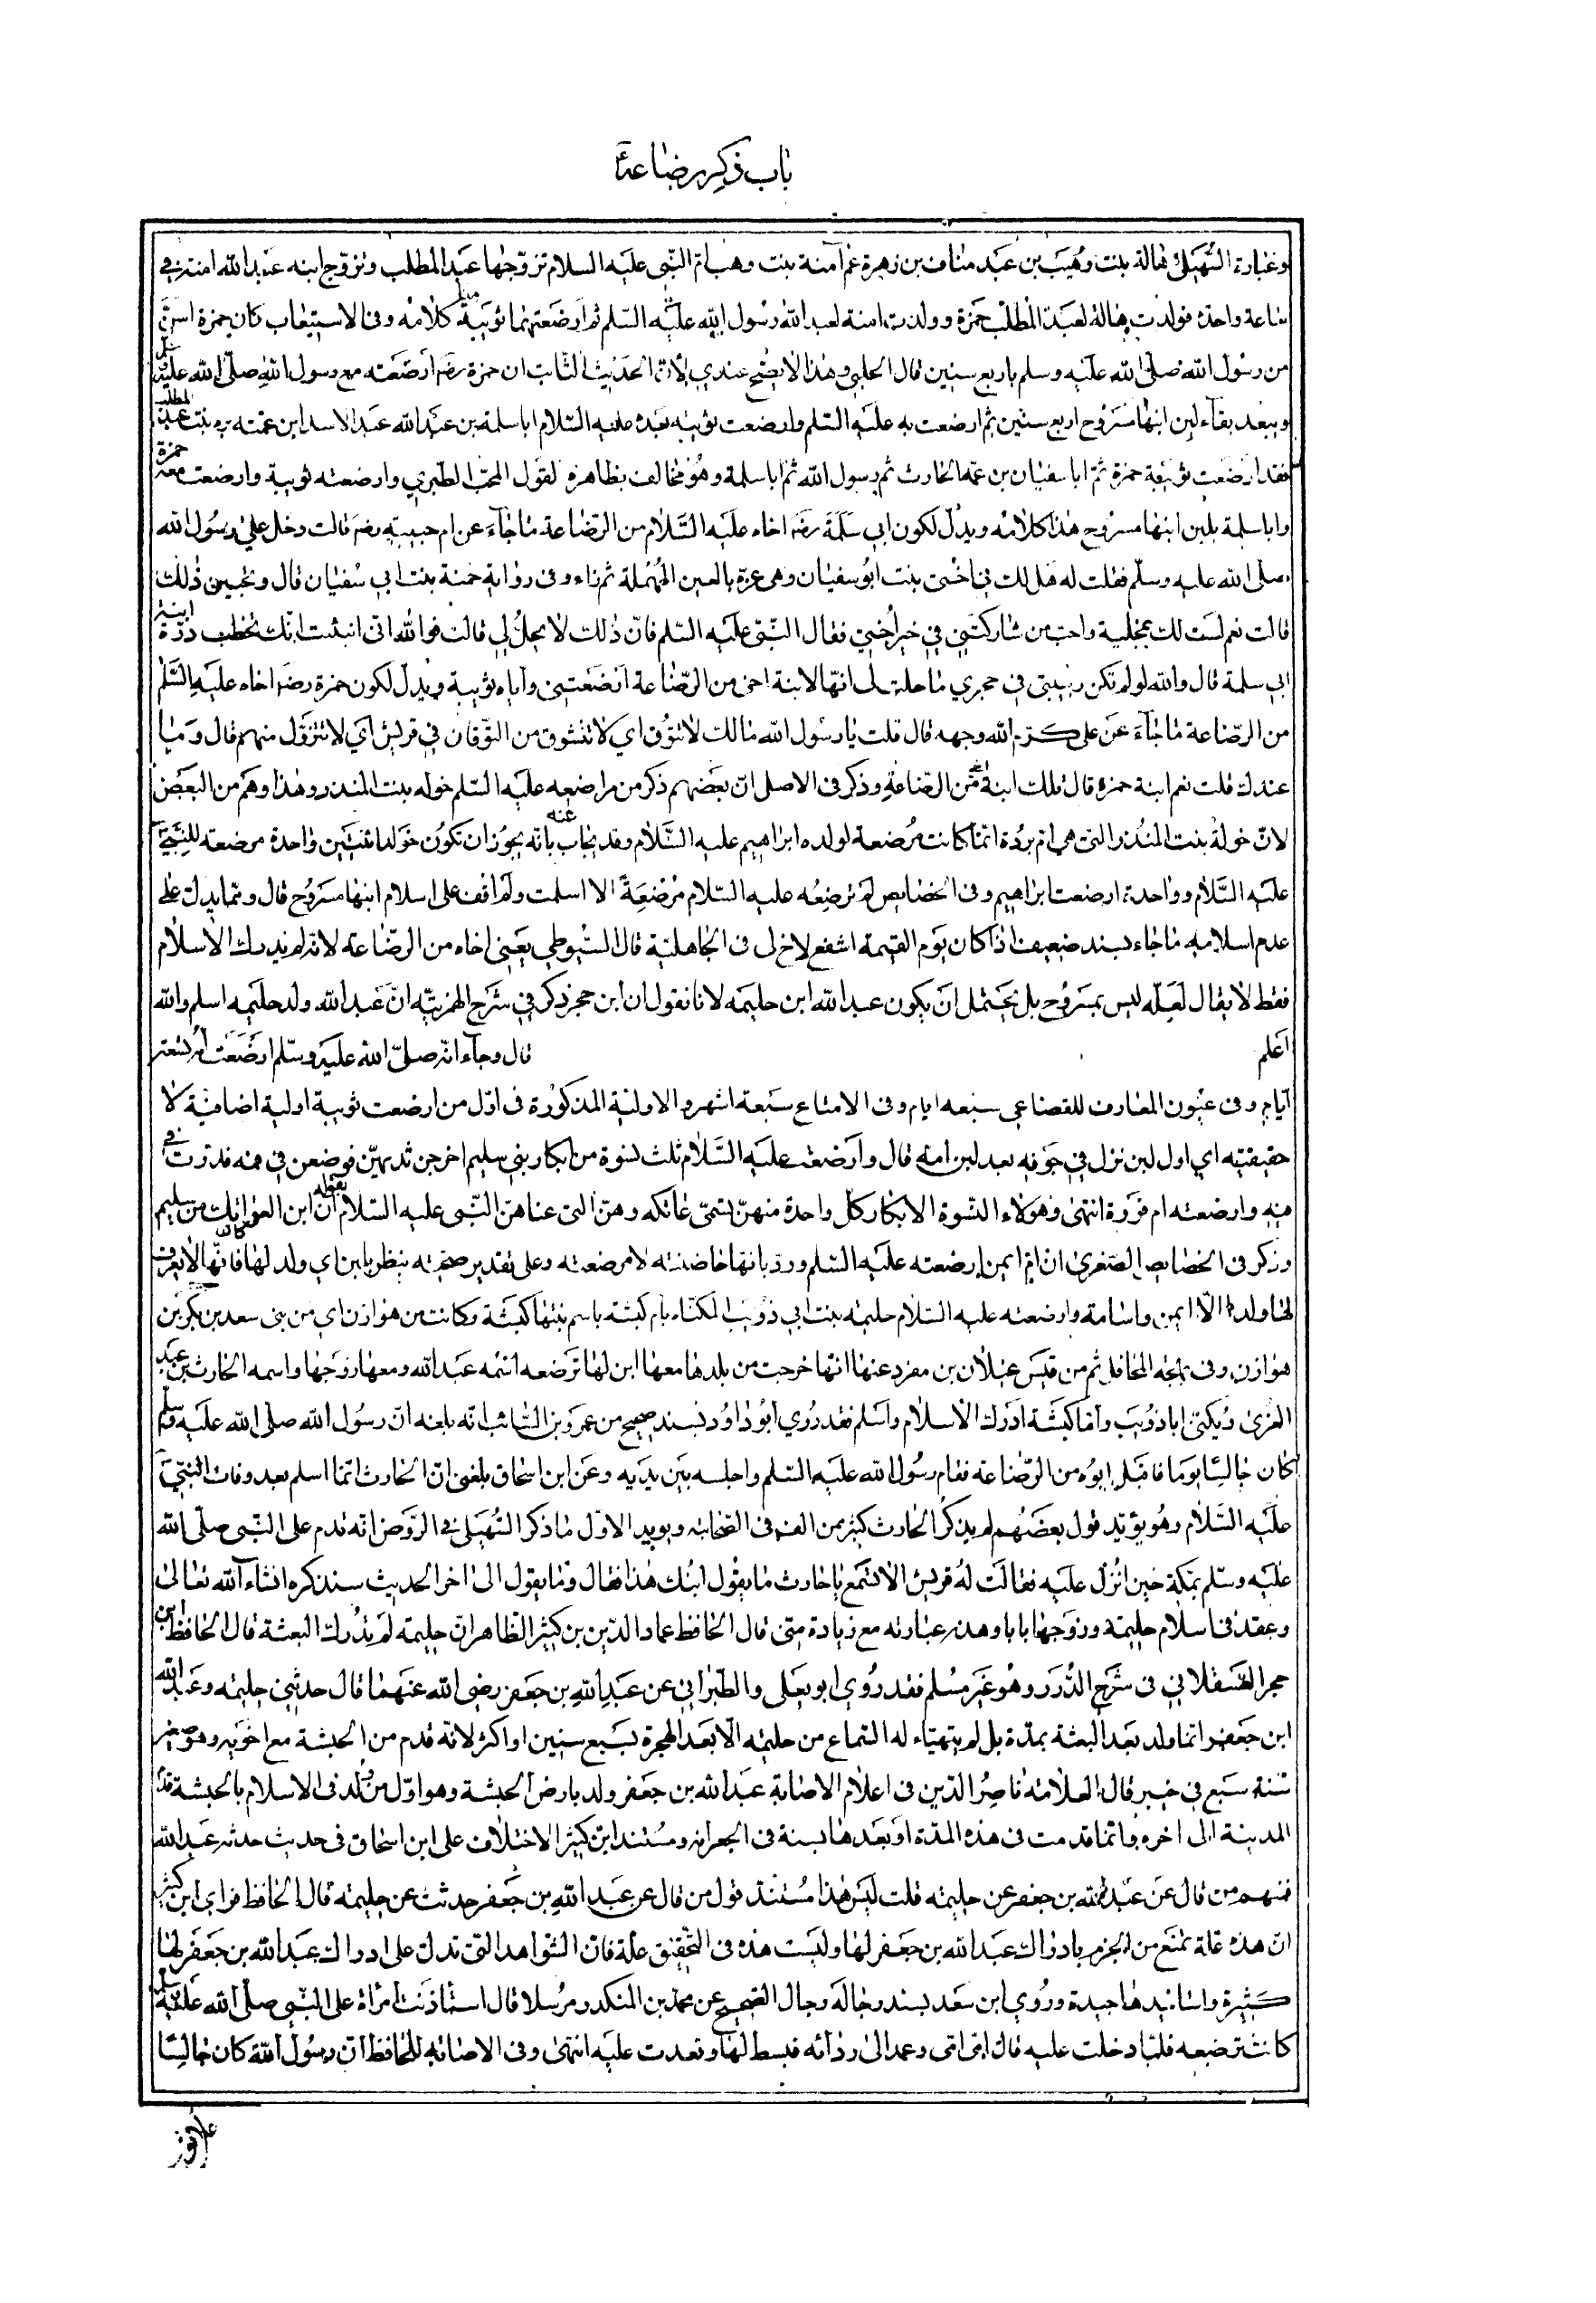 باب ذكر رضاعه
وعبارة السهيلى هالة بنت وهيب بن عبد مناف بن زهرة عم آمنة بنت وهب ام النبى عليه السلام تزوجها عبد المطلب وتزوج ابنه عبد الله امنة فى
ساعة واحدة فولدت هالة لعبد المطلب حمزة وولدت امنة لعبد الله رسول الله عليه السلم ثم ارضعتهما ثويبة كلامه وفى الاستيعاب كان حمزة اسن
من رسول الله صلى الله عليه وسلم باربع سنين قال الحلبى وهذا لا يصح عندى لان الحديث الثابت ان حمزة رضه ارضعته مع رسول الله صلى الله عليه
ويبعد بقاء لبن ابنها مسروح اربع سنين ثم ارضعت به عليه السلم وارضعت ثويبة بعده عليه السلام ابا سلمة بن عبد الله عبد الاسد ابن عمته بره بنت عبد المطلب
فقد ارضعت ثويبة حمزة ثم ابا سفيان بن عمه الحارث ثم رسول الله ثم ابا سلمة وهو مخالف بظاهره لقول المحب الطبرى وارضعته ثويبة وارضعت معه حمزة
وابا سلمة بلبن ابنها مسروح هذا كلامه ويدل لكون ابى سلمة رضه اخاه عليه السلام من الرضاعة ما جاء عن ام حبيبة رضه قالت دخل على رسول الله
صلى الله عليه وسلم فقلت له هل لك فى اختى بنت ابو سفيان وهى عزة بالعين المهملة ثم زاء وفى رواية حمنة بنت ابى سفيان قال وتحبين ذلك
قالت نعم لست لك بمخلية واحب من شاركتنى فى خير اختى فقال النبى عليه السلم فان ذلك لا يحل لى قالت فوالله انى انبئت انك تخطب درة ابنة
ابى سلمة قال والله لو لم تكن ربيبتى فى حجرى ما حلت لى انها لابنة اخى من الرضاعة ارضعتنى واياه ثويبة ويدل لكون حمزة رضه اخاه عليه السلم
من الرضاعة ما جاء عن على كرم الله وجهه قال قلت يا رسول الله مالك لا تتوق اى لا تتشوق من التوقان فى قريش اى لا تتزوج منهم قال وما
عندك قلت نعم ابنة حمزة قال تلك ابنة اخى من الرضاعة وذكر فى الاصل ان بعضهم ذكر من مراضعه عليه السلم خوله بنت المنذر وهذا وهم من البعض
لان خولة بنت المنذر التى هى ام بردة انما كانت مرضعة لولده ابراهيم عليه السلام وقد يجاب عنه بانه يجوز ان تكون خولة اثنتين واحدة مرضعة للنبى
عليه السلام وواحدة ارضعت ابراهيم وفى الخصايص لم ترضعه عليه السلام مرضعة الا اسلمت ولم اقف على اسلام ابنها مسروح قال ومما يدل على
عدم اسلامه ما جاء بسند ضعيف اذا كان يوم القيمة اشفع لاخ لى فى الجاهلية قال السيوطى يعنى اخاه من الرضاعة لانه لم يدرك الاسلام
فقط لا يقال لعله ليس بمسروح بل يحتمل ان يكون عبد الله ابن حليمة لانا نقول ان ابن حجر ذكر فى شرح الهمزية ان عبد الله ولد حليمة اسلم والله
اعلم قال وجاء انه صلى الله عليه وسلم ارضعت امه تسعة
ايام وفى عيون المعارف للقضاعى سبعه ايام وفى الامتاع سبعة اشهر والاولية المذكورة فى اول من ارضعت ثويبة اولية اضافية لا
حقيقيه اى اول لبن نزل فى جوفه بعد لبن امه قال وارضعت عليه السلام ثلث نسوة من ابكار بنى سليم اخرجن ثديهن فوضعن فى فمه فدرت فى
منه وارضعته ام فروة انتهى وهولاء النسوة الابكار كل واحدة منهن تسمى عاتكه وهن التى عناهن النبى عليه السلام بقوله ان ابن العواتك من سليم
وذكر فى الخصايص الصغرى ان ام ايمن ارضعته عليه السلم ورد بانها حاضنته لا مرضعته وعلى تقدير صحته ينظر بابن اى ولد لها كان فانها لا يعرف
لها ولد الا ايمن واسامة وارضعته عليه السلام حليمة بنت ابى ذويب المكناه بام كبشه باسم بنتها كبشة وكانت من هوازن اى من بنى سعد بن بكر بن
هوازن وفى بهجة المحافل ثم من قيس عيلان بن مضر وعنها انها خرجت من بلدها معها ابن لها ترضعه اسمه عبد الله ومعها زوجها واسمه الحارث بن عبد
العزى ويكنى ابا ذويب واما كبشة ادرك الاسلام واسلم فقد روى ابو داود بسند صحيح من عمرو بن السائب انه بلغه ان رسول الله صلى الله عليه وسلم
كان جالسا يوما فاقبل ابوه من الرضاعة فقام رسول الله عليه السلم واجلسه بين يديه وعن ابن اسحاق بلغنى ان الحارث انما اسلم بعد وفات النبى
عليه السلام وهو يؤيد قول بعضهم لم يذكر الحارث كثير من الف فى الصحابه ويويد الاول ما ذكر السهيلى فى الروض انه قدم على النبى صلى الله
عليه وسلم بمكة حين انزل عليه فقالت له قريش الا تسمع يا حارث ما يقول ابنك هذا فقال وما يقول الى اخر الحديث سنذكره انشاء الله تعالى
وعقد فى اسلام حليمة وزوجها بابا وهذه عبارته مع زيادة منى قال الحافظ عماد الدين بن كثير الظاهر ان حليمة لم تدرك البعثة قال الحافظ ابن
حجر العسقلانى فى شرح الدرر وهو غير مسلم فقد روى ابو يعلى والطبرانى عن عبد الله بن جعفر رضى الله عنهما قال حدثنى حليمة وعبد الله
ابن جعفر انما ولد بعد البعثة بمدة بل لم يتهياء له السماع من حليمة الا بعد الهجرة بسبع سنين او اكثر لانه قدم من الحبشة مع اخويه وهو صغير
سنة سبع فى خيبر قال العلامة ناصر الدين فى اعلام الاصابة عبد الله بن جعفر ولد بارض الحبشة وهو اول من ولد فى الاسلام بالحبشة قدم
المدينة الى اخره وانما قدمت فى هذه المدة او بعدها بسنة فى الجعرانه ومستند ابن كثير الاختلاف على ابن اسحاق فى حديث حدثه عبد الله
فمنهم من قال عن عبد الله بن جعفر عن حليمة قلت ليس هذا مستند قول من قال عن عبد الله بن جعفر حدثت عن حليمة قال الحافظ فراى ابن كثير
ان هذه علة تمنع من الجزم بادراك عبد الله بن جعفر لها وليست هذه فى التحقيق علة فان الشواهد التى تدل على ادراك عبد الله بن جعفر لها
كثيرة واسانيدها جيدة وروى ابن سعد بسند رجاله رجال الصحيح عن محمد بن المنكدر مرسلا قال استأذنت امراة على النبى صلى الله عليه وسلم
كانت ترضعه فلما دخلت عليه قال امى امى وعمد الى ردائه فبسط لها وقعدت عليه انتهى وفى الاصابة للحافظ ان رسول الله كان جالسا